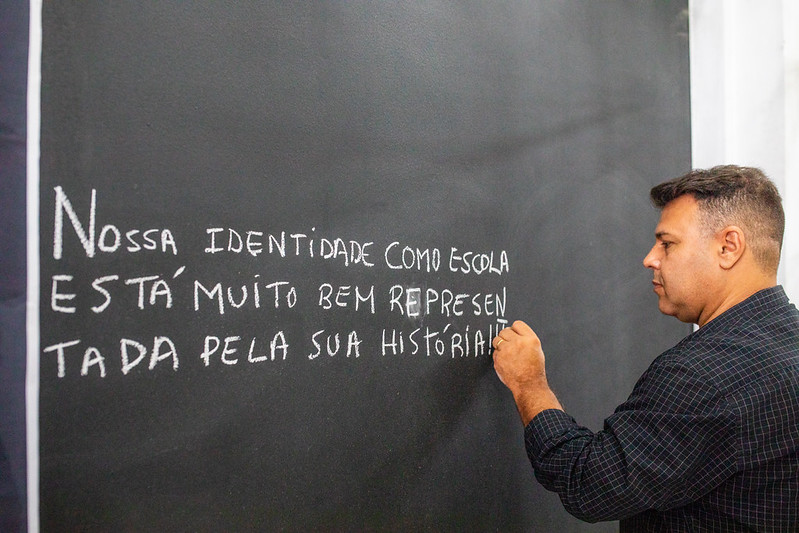 NOSSA IDENTIDADE COMO ESCOLA
ESTÁ MUITO BEM REPRESEN
TADA PELA SUA HISTÓRIA!!